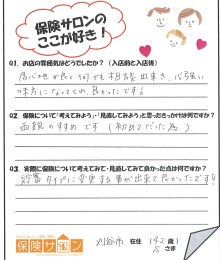 保険サロンの
ここが好き！
Q1. お店の雰囲気はどうでしたか？（入店前と入店後）
居心地が良く何でも相談出来き、心強い
味方になってくれ、良かったです！
Q2. 保険について「考えてみよう」・「見直してみよう」と思ったきっかけは何ですか？
両親のすすめです（初めてだった為）
Q3. 実際に保険について考えてみて・見直してみて良かった点は何ですか？
貯蓄タイプに変更する事が出来て良かったです！
保険サロン
刈谷市 在住（42歳）
Sさま